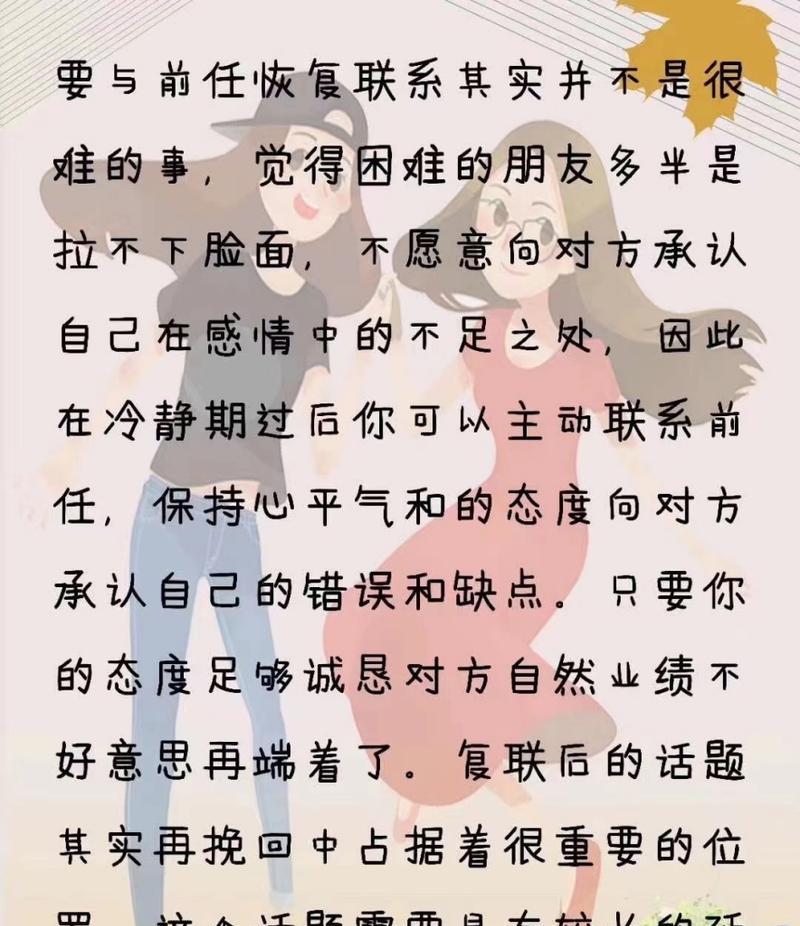 要与前任恢复联系其实并不是很
难的事，觉得困难的朋友多半是
拉不下脸面，不愿意向对方承认
自己在感情中的不足之处，因此
在冷静期过后你可以主动联系前
任，保持心平气和的态度向对方
承认自己的错误和缺点。只要你
的态度足够诚恳对方自然业绩不
好意思再端着了。复联后的话题
其实再挽回中占据着很重要的位